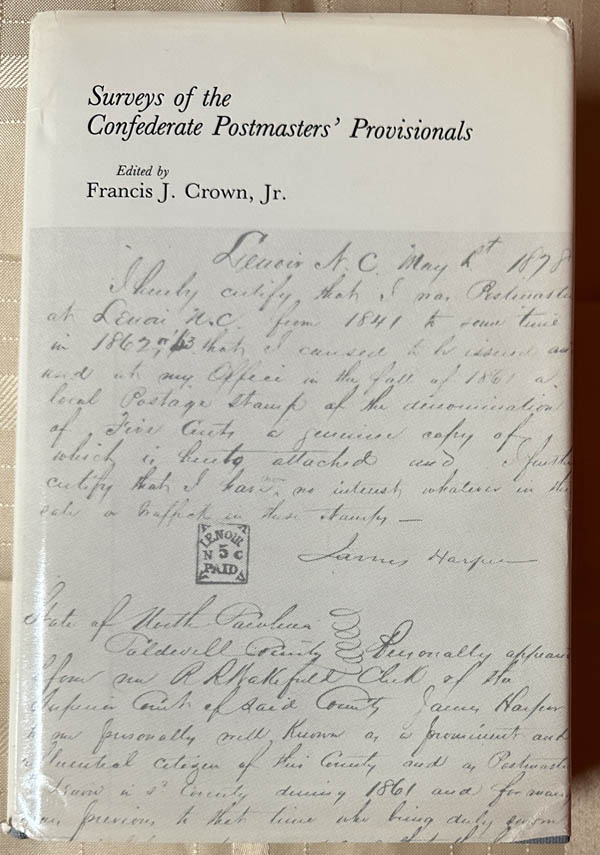 Surveys of the
Confederate Postmasters' Provisionals
Edited by
Francis J. Crown, Jr.
Lenoir N. C. May 1878
I hereby certify that I was Postmaste
at Lenoir N.C. from 1841 to some time
in 1862 that I caused to be issued an
used at my Office in the fall of 1861 a
local Postage Stamp of the denomination
of Five Cents a genuine copy of
which is hereto attached and I furth
certify that I have no interest whatever in the
sale or traffick in these stamps —
James Harper
LENOIR
N 5 C
PAID
State of North Carolina
Caldwell County Personally appeare
before me R R Wakefield Clerk of the
Superior Court of said County James Harper
to me personally well known as a prominent and
influential citizen of this County and as Postmaste
known in sd County during 1861 and for many
years previous to that time who being duly sworn